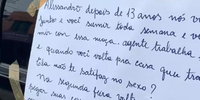 Alessandro depois de 13 anos nós v
juntos e você some toda semana e v
mir com essa moça. agente trabalha
e quando você volta pra casa quer tra
Ela não te satisfaz no sexo?
Na segunda feira volt
pegar suas co